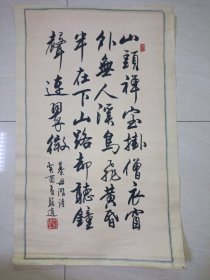 山頭禅室掛僧衣窗
外無人溪鳥飛黄昏
半在下山路却聽鐘
聲連翠微
綦毋潜詩
癸酉春